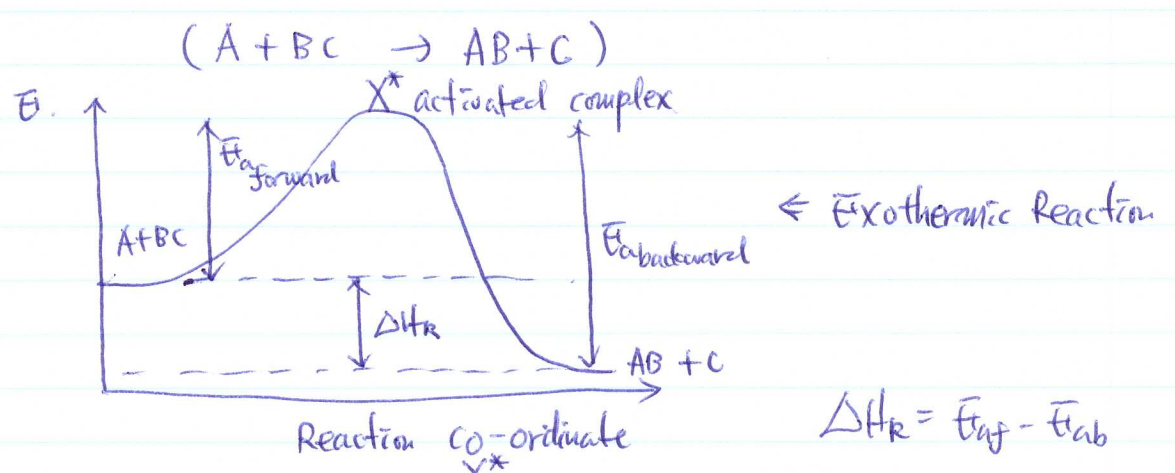 (A + BC → AB + C)
E.
X* activated complex
Ea forward
A+BC
Ea backward
← Exothermic Reaction
ΔHR
AB + C
Reaction co-ordinate
ΔHR = Eaf - Eab
X*